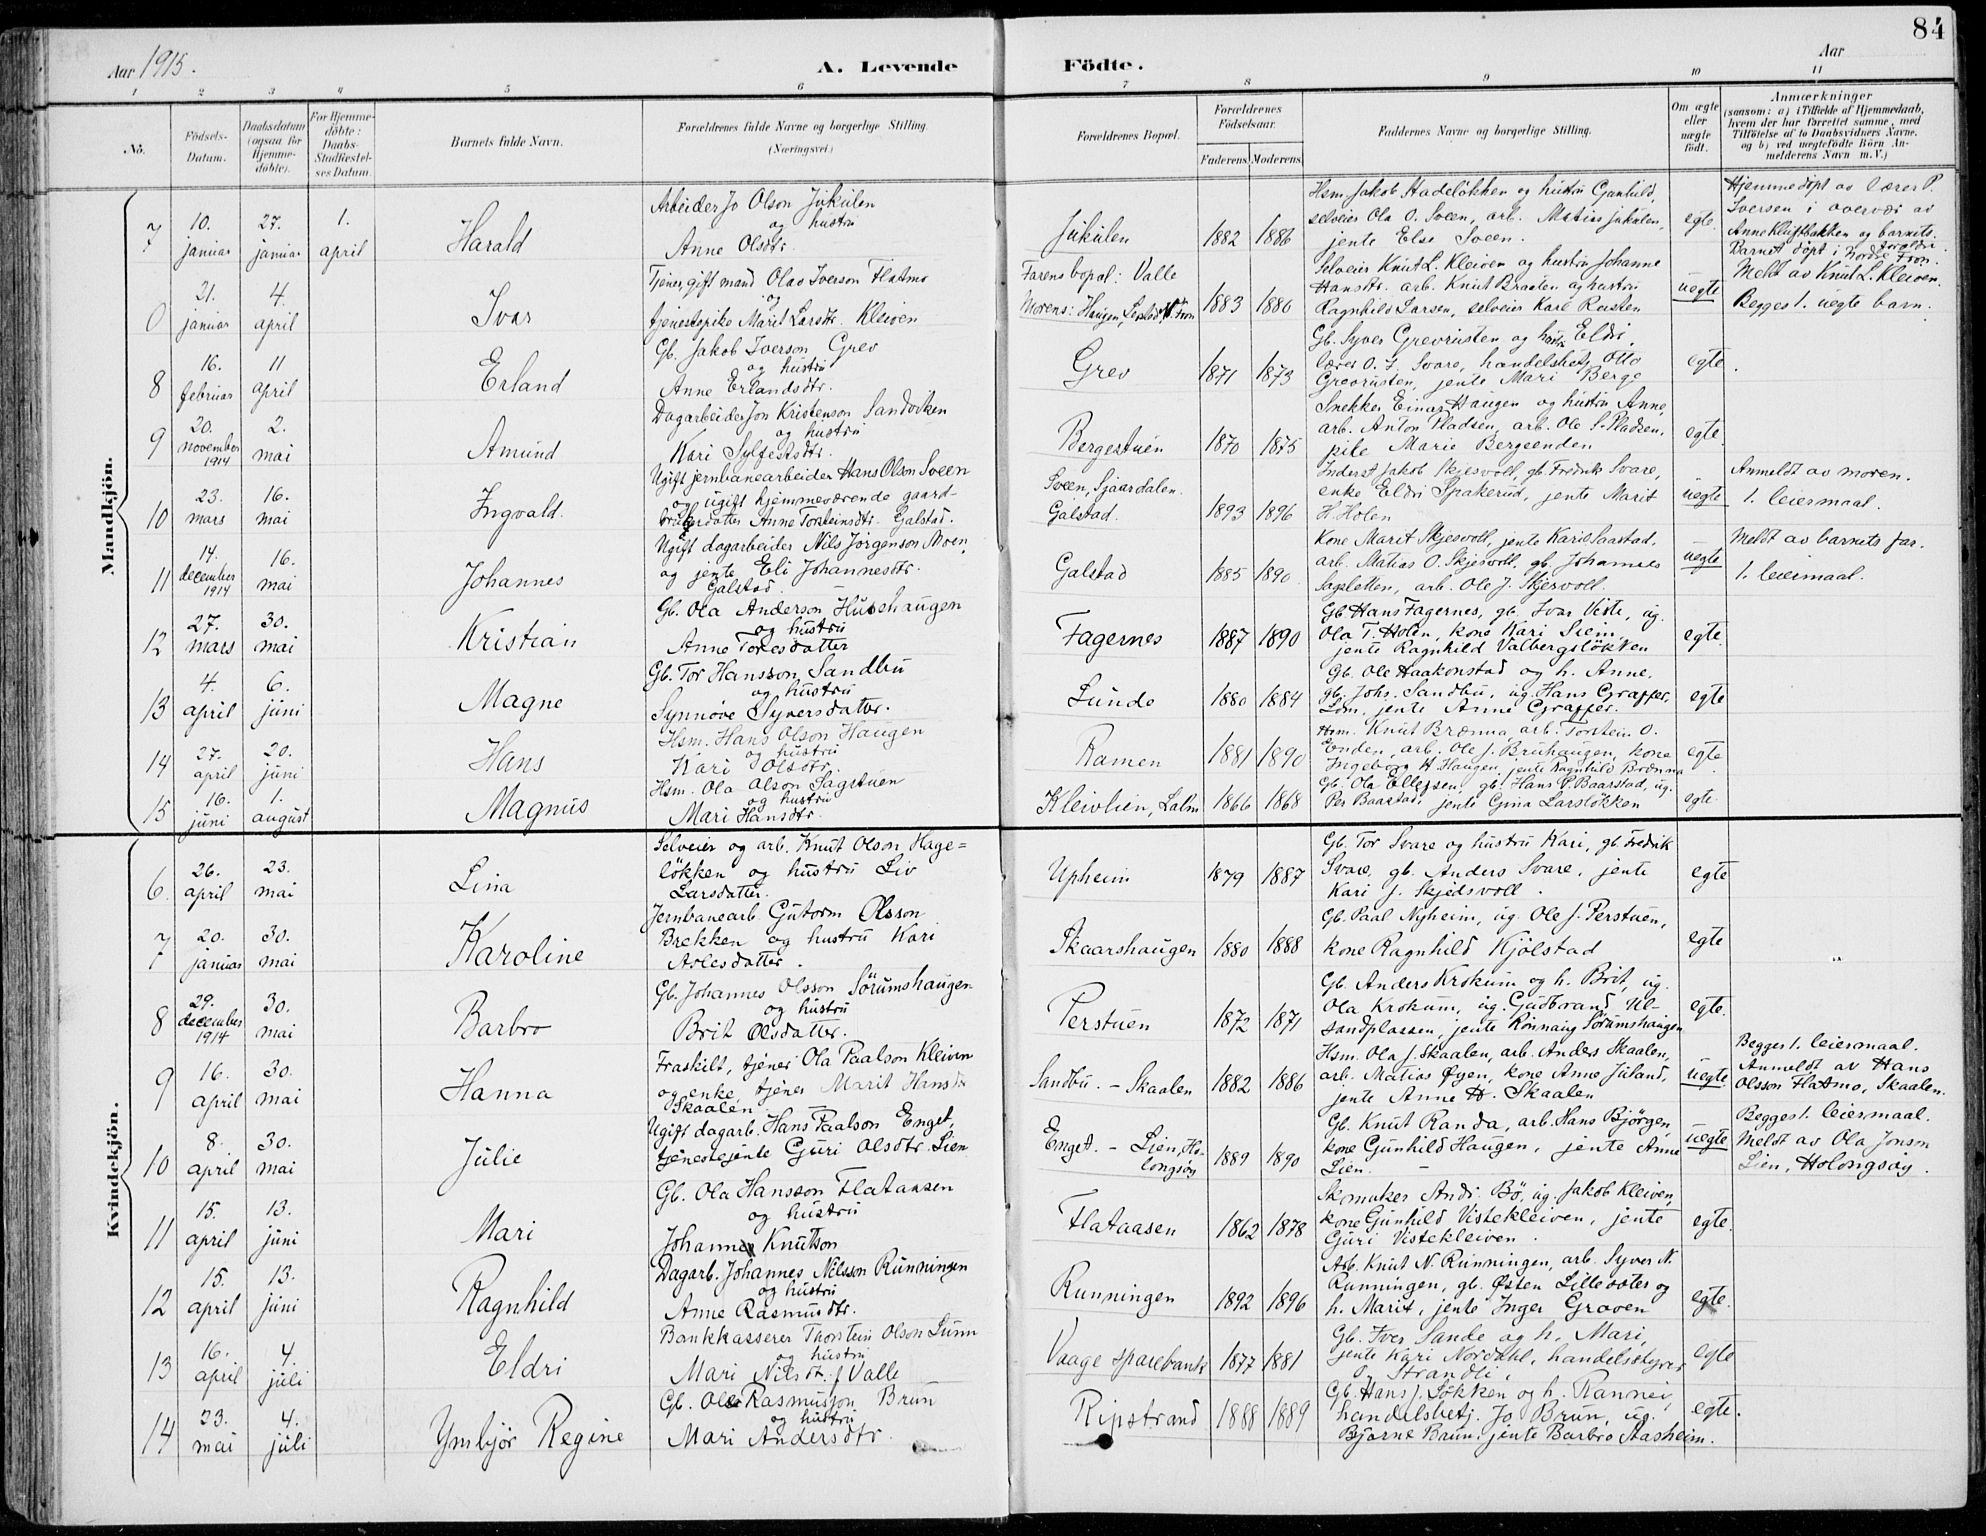 84
Aar 1915.
A. Levende Födte.
Aar
1 2 3 4 5 6 7 8 9 10 11
No.
Födsels-Datum.
Daabsdatum (ogsaa for Hjemmedöbte).
For Hjemmedöbte: Daabs-Stadfestelses Datum.
Barnets fulde Navn.
Forældrenes fulde Navne og borgerlige Stilling. (Næringsvei.)
Forældrenes Bopæl.
Forældrenes Födselsaar.
Faderens. Moderens.
Faddernes Navne og borgerlige Stilling.
Om ægte eller uægte födt.
Anmærkninger
(saasom: a) i Tilfælde af Hjemmedaab, hvem der har forrettet samme, med Tilföielse af to Daabsvidners Navne. og b) ved uægtefödte Börn Anmelderens Navn m. V.)
Mandkjön.
7 10. januar 27. januar 1. april Harald
Arbeider Jo Olson Jukulen
og hustru
Anne Olsdtr.
Jukulen 1882 1886
Hsm. Jakob Stadeløkken og hustru Gunhild,
selveier Ola O. Sveen, arb. Matias Jukulen,
jente Else Sveen.
egte.
Hjemmedøpt av lærer P.
Iversen i overvær av
Anne Kluftbakken og barnets foreldre.
Barnet døpt i Nordre Fron.
0 21. januar 4. april Ivar
Tjener, gift mand Olav Iverson Flatmo
og
tjenestepike Marit Larsdtr. Kleiven
Farens bopæl: Valle
Morens: Haugen,
1883 1886
Selveier Knut L. Kleiven og hustru Johanne
Hansdtr. arb. Knut Braalen og hustru
Ragnhild Larsen, selveier Karl Rusten
uegte
Meldt av Knut L. Kleiven.
Begges 1. uegte barn.
8 16. februar 11 april Erland
Gb. Jakob Iverson Grev
og hustru
Anne Erlandsdtr.
Grev 1871 1873
Gb. Syver Grevrusten og hustru Eldri,
lærer O. J. Svare, handelsbetj. Otto
Grevrusten, jente Mari Berge
egte.
9 20. november 1914 2. mai Amund
Dagarbeider Jon Kristenson Sandviken
og hustru
Kari Sylfestsdtr.
Bergestuen 1870 1875
Snekker Einar Haugen og hustru Anne,
arb. Anton Pladsen, arb. Ole S. Pladsen,
pike Marie Bergeenden
egte
10 23. mars 16. mai Ingvald.
Ugift jernbanearbeider Hans Olson Sveen
og ugift hjemmeværende gaard-
brukerdatter Anne Torsteinsdtr. Galstad.
Sveen, Sjaardalen.
Galstad. 1893 1896
Inderst Jakob Skjesvoll, gb. Fredrik Svare,
enke Eldri Spakerud, jente Marit
H. Holen
uegte
Anmeldt av moren.
1. leiermaal.
11 14. december 1914 16. mai Johannes
Ugift dagarbeider Nils Jørgenson Moen,
og jente Eli Johannesdtr.
Galstad.
Galstad 1885 1890
Kone Marit Skjesvoll, jente Kari Saastad,
arb. Matias O. Skjesvoll, gb. Johannes
Sagsletten, arb. Ole J. Skjesvoll.
uegte
Meldt av barnets far.
1. leiermaal.
12 27. mars 30. mai Kristian
Gb. Ola Anderson Hushaugen
og hustru
Anne Toresdatter
Fagernes 1887 1890
Gb. Hans Fagernes, gb. Ivar Viste, ug.
Ola T. Holen, kone Kari Siem,
jente Ragnhild Valbergsløkken
egte.
13 4. april 6. juni Magne
Gb. Tor Hansson Sandbu
og hustru
Synnøve Syversdatter.
Lunde 1880 1884
Gb. Ole Haakonstad og h. Anne,
gb. Johs. Sandbu, ug. Hans Graffer,
Lom, jente Anne Graffer.
egte
14 27. april 20. juni Hans
Hsm. Hans Olson Haugen
og hustru
Kari Olsdtr.
Ramen 1881 1890
Hsm. Knut Brænna, arb. Torstein O.
Enden, arb. Ole J. Bruhaugen, kone
Ingeborg H. Haugen, jente Ragnhild Brænna
egte
15 16. juni 1. august Magnus
Hsm. Ola Olson Sagstuen
og hustru
Mari Hansdtr.
Kleivlien, Lalm 1866 1868
Gb. Ola Ellefsen, gb. Hans P. Baarstad, ug.
Per Baarstad, jente Gina Larsløkken
egte
Kvindekjön.
6 26. april 23. mai Lina
Selveier og arb. Knut Olson Hage=
løkken og hustru Liv
Larsdatter.
Upheim 1879 1887
Gb. Tor Svare og hustru Kari, gb. Fredrik
Svare, gb. Anders Svare, jente
Kari J. Skjedsvoll.
egte
7 20. januar 30. mai Karoline
Jernbanearb. Gutorm Olsson
Brekken og hustru Kari
Aslesdatter.
Skaarshaugen 1880 1888
Gb. Paal Nyheim, ug. Ole J. Perstuen,
kone Ragnhild Kjølstad
egte
8 29. december 1914 30. mai Barbro
Gb. Johannes Olsson Sørumshaugen
og hustru
Brit Olsdatter.
Perstuen 1872 1871
Gb. Anders Krokum og h. Brit, ug.
Ola Krokum, ug. Gudbrand Ul-
sandplassen, jente Rønnaug Sørumshaugen
egte.
9 16. april 30. mai Hanna
Fraskilt, tjener Ola Paalson Kleiven
og enke, tjener Marit Hansdtr
Skaalen
Sandbu. - Skaalen 1882 1886
Hsm. Ola J. Skaalen, arb. Anders Skaalen,
arb. Matias Øyen, kone Anne Juland,
jente Anne H. Skaalen
uegte
Begges 1. leiermaal.
Anmeldt av Hans
Olsson Flatmo, Skaalen.
10 8. april 30. mai Julie
Ugift dagarb. Hans Paalson Enget,
tjenestejente Guri Olsdtr. Lien
Enget. - Lien, Ho-
longsøy 1889 1890
Gb. Knut Randa, arb. Hans Bjørgen,
kone Gunhild Haugen, jente Anne
Lien.
uegte
Begges 1. leiermaal.
Meldt av Ola Jonson
Lien, Holongsøy.
11 15. april 13. juni Mari
Gb. Ola Hansson Flataasen
og hustru
Johanne Knutson
Flataasen 1862 1878
Skomaker Andr. Bø, ug. Jakob Kleiven,
kone Gunhild Vistekleiven, jente
Guri Vistekleiven.
egte.
12 15. april 13. juni Ragnhild
Dagarb. Johannes Nilsson Runningen
og hustru
Anne Rasmusdtr.
Runningen 1892 1896
Arb. Knut N. Runningen, arb. Syver N.
Runningen, gb. Østen Lillesæter og
h. Marit, jente Inger Graven
egte.
13 16. april 4. juli Eldri
Bankkasserer Thorstein Olson Sunn
og hustru
Mari Nilsdtr. f Valle
Vaage sparebank 1877 1881
Gb. Iver Sande og h. Mari,
jente Kari Nordahl, handelsstyrer
O. Strandli,
egte
14 23. mai 4. juli Ymbjør Regine
Gb. Ole Rasmusson Brun
og hustru
Mari Andersdtr.
Ripstrand 1888 1889
Gb. Hans J. Løkken og h. Rannei,
handelsbetj. Jo Brun, ug.
Bjarne Brun, jente Barbro Aasheim.
egte.